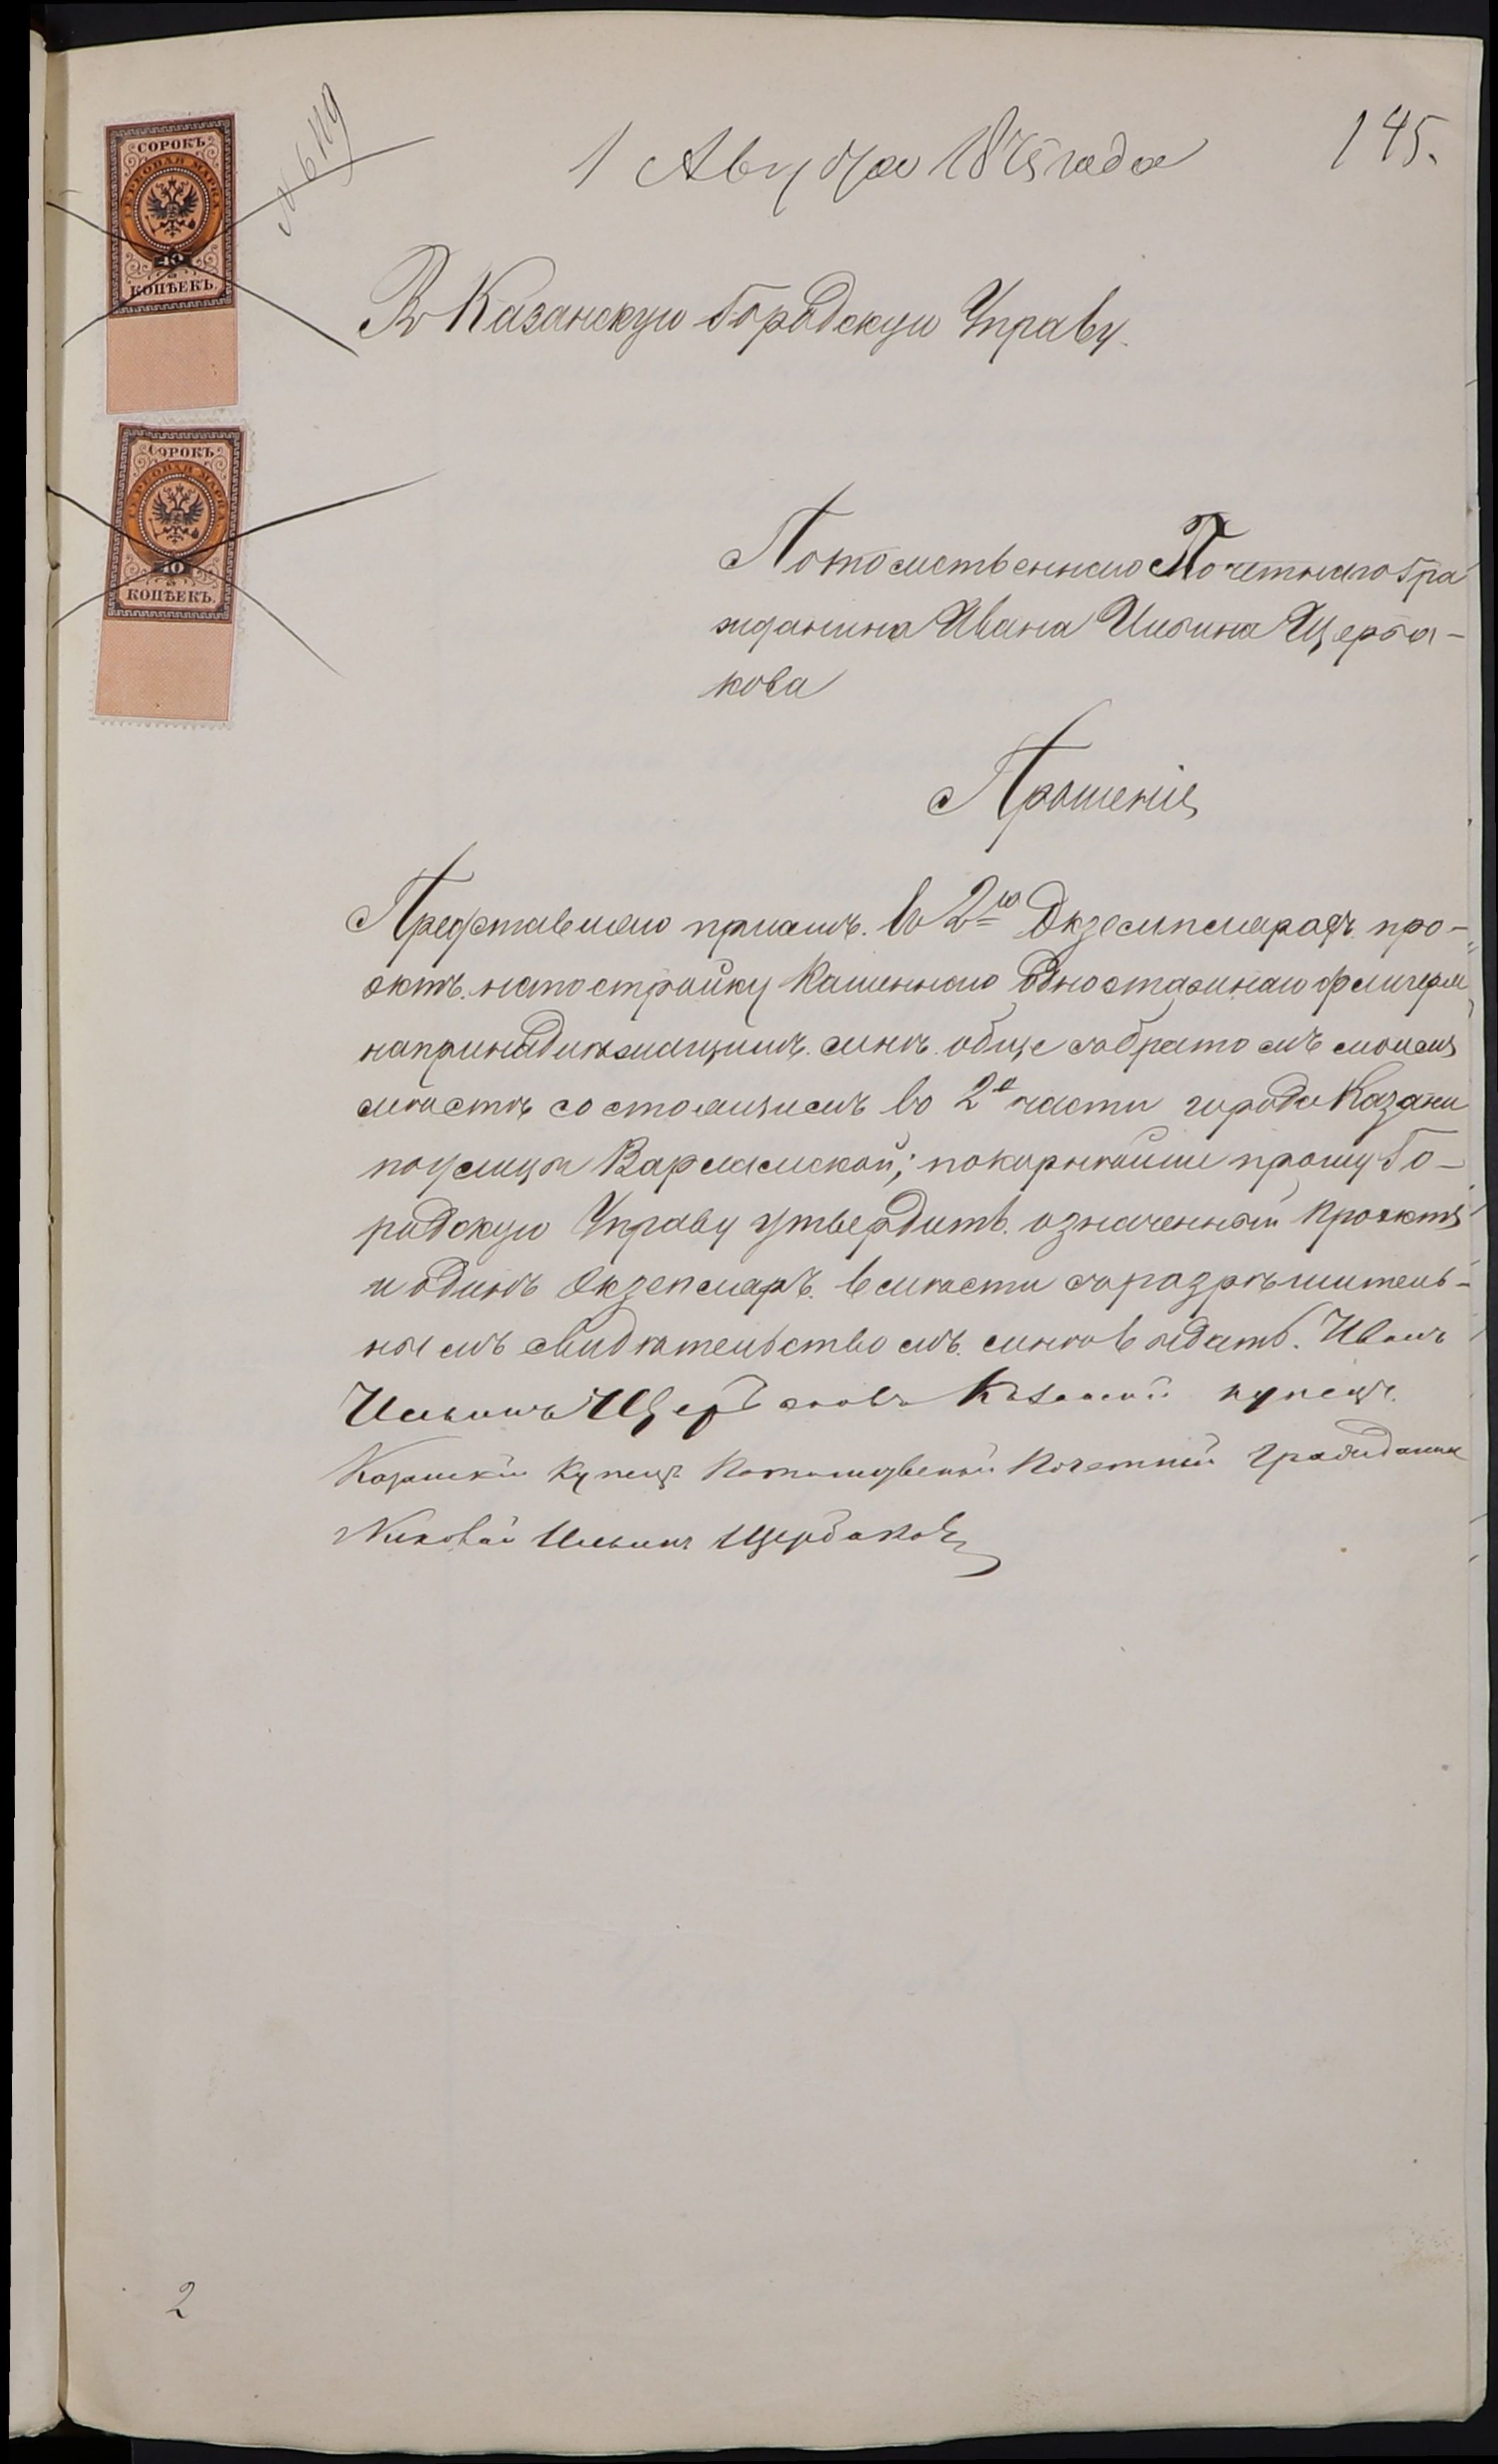 145.
№ 6119
1 Августа 1875 года
СОРОКЪ
ГЕРБОВАЯ МАРКА
40
КОПѢЕКЪ.
Въ Казанскую Городскую Управу.
СОРОКЪ
ГЕРБОВАЯ МАРКА
40
КОПѢЕКЪ.
Потомственнаго Почетнаго Гра
жданина Ивана Ильина Щерба-
кова
Прошеніе
Представляю при семъ въ 2хъ Экземплярахъ про-
эктъ на постройку Каменнаго Одноэтажнаго флигеля
на принадлежащимъ мнѣ обще съ братомъ моимъ
мѣстѣ состоящимъ во 2й части города Казани
по улицѣ Варламской; покорнѣйше прошу Го-
родскую Управу утвердить означенный проэктъ
и одинъ Экзепляръ вмѣсти съ разрѣшитель-
нымъ свидѣтельствомъ мнѣ выдать. Иванъ
Ильинъ Щербаковъ Казанской купецъ.
Казанскій Купецъ Потомственый Почетный Гражданин
Николай Ильинъ Щербаковъ
2